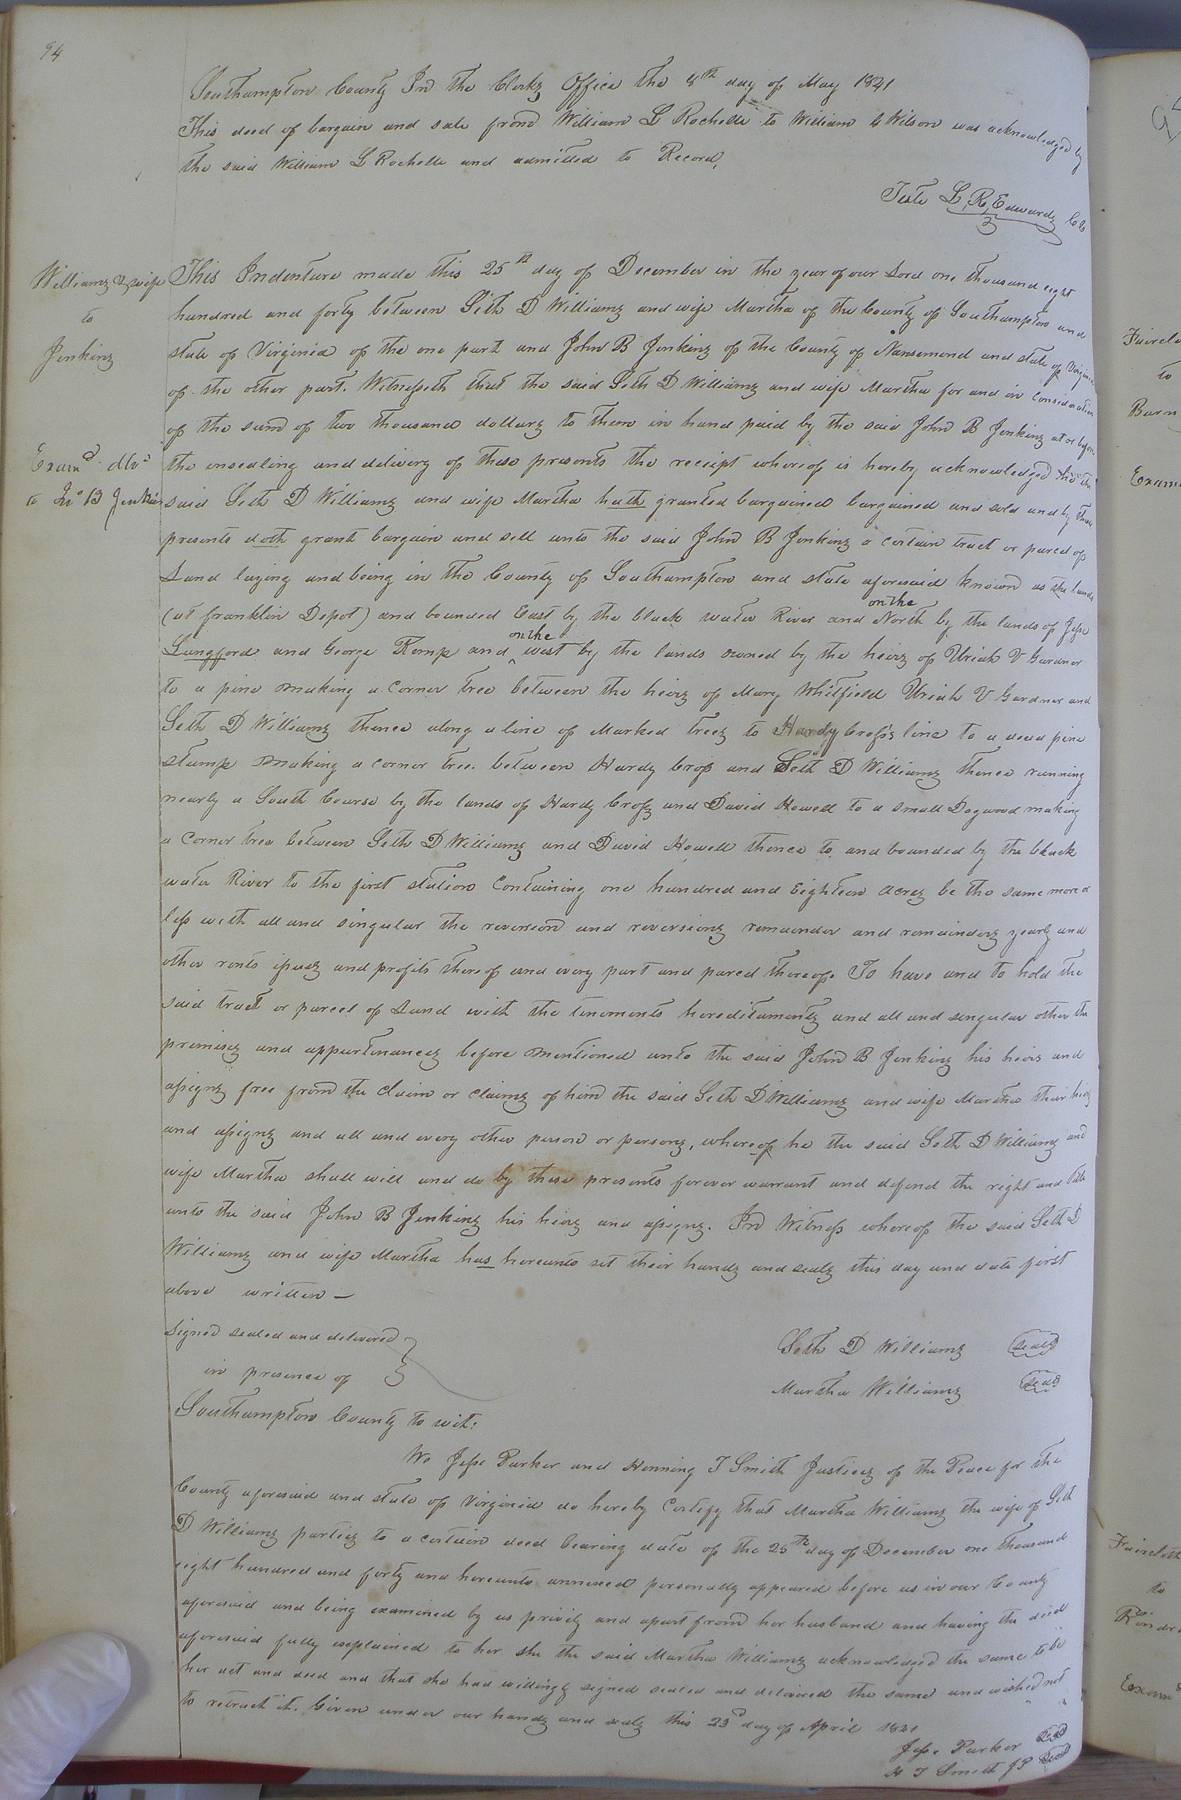 94
Southampton County In the Clerks Office the 4th day of May 1841
This deed of bargain and sale from William L Rochelle to William Wilson was acknowledged by
the said William L Rochelle and admitted to Record,
Teste L. R. Edwards CC
Williams & wife
to
Jenkins
Examd
to Jno B Jenkins
This Indenture made this 25th day of December in the year of our Lord one thousand eight
hundred and forty between Seth D Williams and wife Martha of the County of Southampton and
state of Virginia of the one part and John B Jenkins of the County of Nansemond and state of Virginia
of the other part. Witnesseth that the said Seth D Williams and wife Martha for and in consideration
of the sum of two thousand dollars to them in hand paid by the said John B Jenkins at or before
the ensealing and delivery of these presents the receipt whereof is hereby acknowledged the
said Seth D Williams and wife Martha hath granted bargained bargained and sold and by these
presents doth grant bargain and sell unto the said John B Jenkins a certain tract or parcel of
Land laying and being in the County of Southampton and state aforesaid known as the lands
(at franklin Depot) and bounded East by the black water River and on the North by the lands of Jesse
Lungford and George Kemp and on the west by the lands owned by the heirs of Uriah V Gardner
to a pine making a corner tree between the heirs of Mary Whitfield Uriah V Gardner and
Seth D Williams thence along a line of Marked trees to Hardy Cross's line to a dead pine
stump making a corner tree. between Hardy Cross and Seth D Williams thence running
nearly a South Course by the lands of Hardy Cross and David Howell to a small Dogwood making
a Corner tree between Seth D Williams and David Howell thence to and bounded by the black
water River to the first station Containing one hundred and Eighteen acres be the same more or
less with all and singular the reversion and reversions remainder and remainders yearly and
other rents issues and profits thereof and every part and parcel thereof. To have and to hold the
said tract or parcel of Land with the tenements hereditaments and all and singular other the
premises and appurtenances before mentioned unto the said John B Jenkins his heirs and
assigns free from the claim or claims of him the said Seth D Williams and wife Martha their heirs
and assigns and all and every other person or persons, whereof he the said Seth D Williams and
wife Martha shall will and do by these presents forever warrant and defend the right and title
unto the said John B Jenkins his heirs and assigns. In Witness whereof the said Seth D
Williams and wife Martha has hereunto set their hands and seals this day and date first
above written —
Signed sealed and delivered
in presence of
Seth D Williams seal
Martha Williams seal
Southampton County to wit:
We Jesse Parker and Henning T Smith Justices of the Peace for the
County aforesaid and state of Virginia do hereby Certify that Martha Williams the wife of Seth
D Williams parties to a certain deed bearing date of the 25th day of December one thousand
eight hundred and forty and hereunto annexed personally appeared before us in our County
aforesaid and being examined by us privily and apart from her husband and having the deed
aforesaid fully explained to her she the said Martha Williams acknowledged the same to be
her act and deed and that she had willingly signed sealed and delivered the same and wished not
to retract it. Given under our hands and seals this 23d day of April 1841
Jesse Parker seal
H T Smith JP seal
to
Barn
Exam
to
Exam